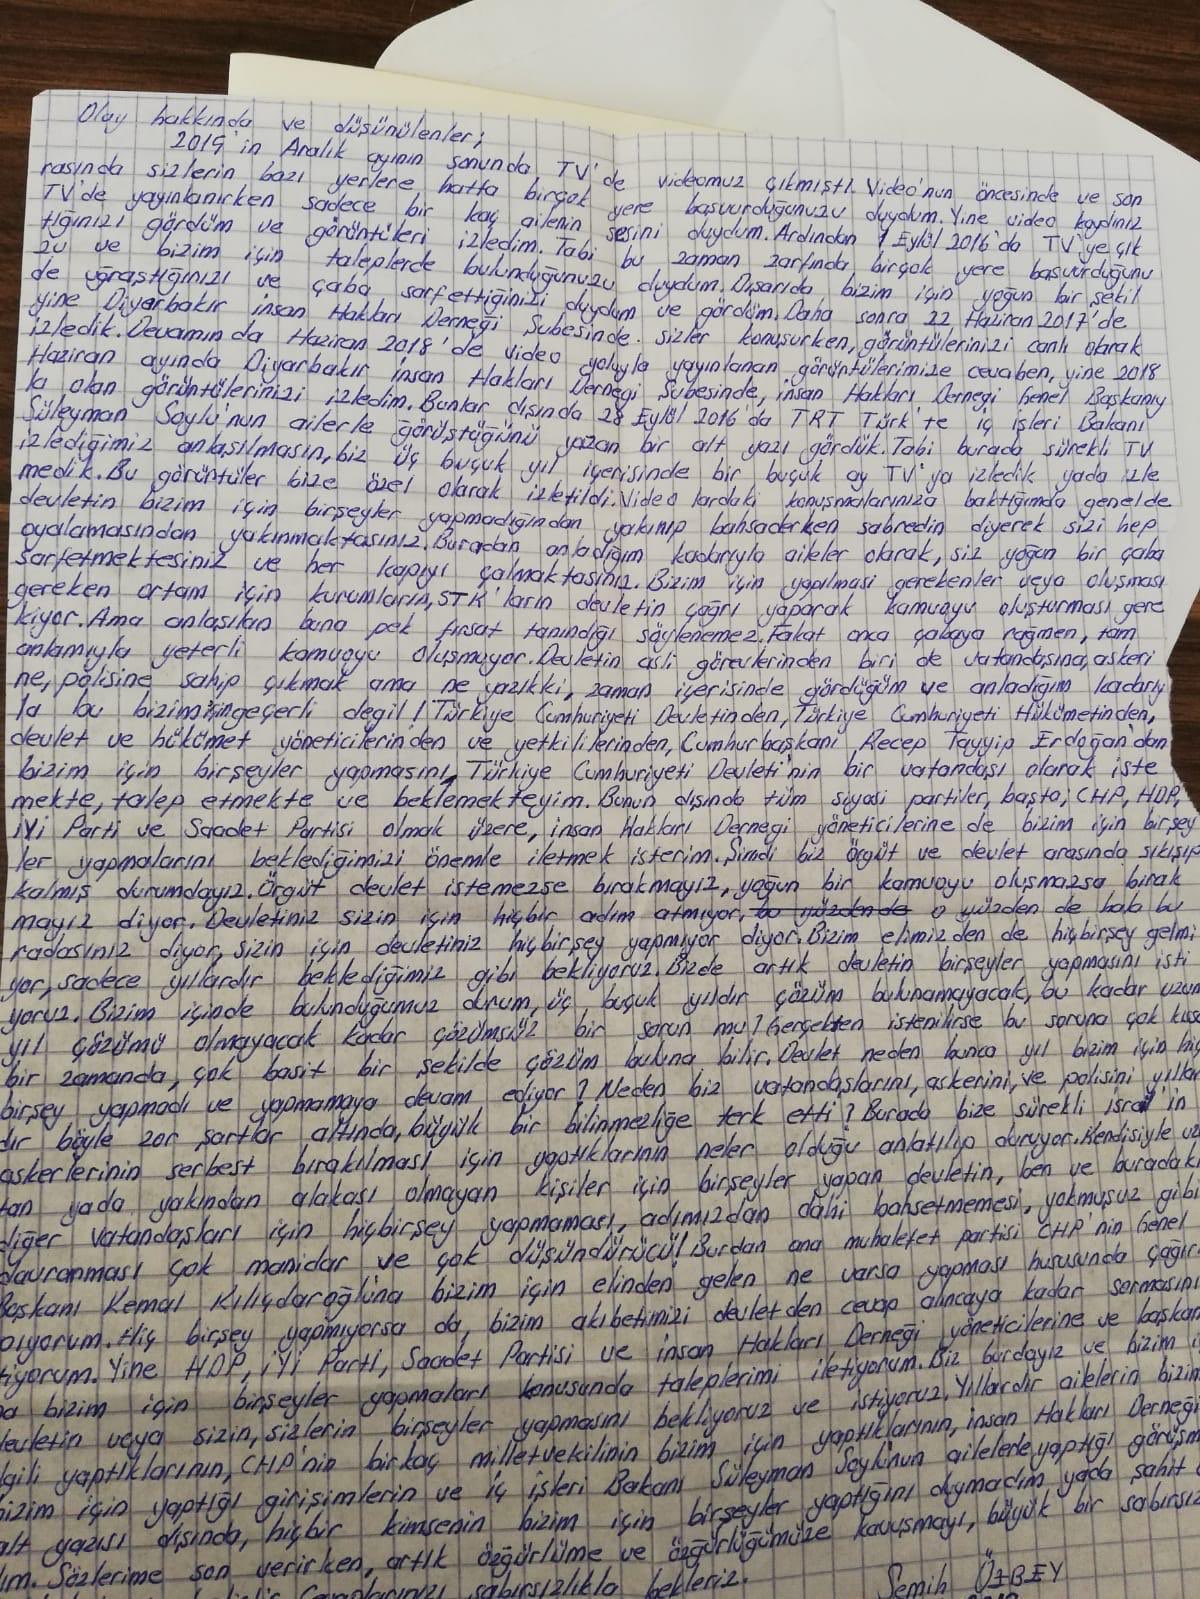 Olay hakkında ve düşünülenler;
2015'in Aralık ayının sonunda TV'de videomuz çıkmıştı. Video'nun öncesinde ve son
rasında sizlerin bazı yerlere, hatta birçok yere başvurduğunuzu duydum. Yine video kaydınız
TV'de yayınlanırken sadece bir kaç ailenin sesini duydum. Ardından 1 Eylül 2016'da TV'ye çık
tığınızı gördüm ve görüntüleri izledim. Tabi bu zaman zarfında birçok yere başvurduğunu
zu ve bizim için taleplerde bulunduğunuzu duydum. Dışarıda bizim için yoğun bir şekil
de uğraştığınızı ve çaba sarfettiğinizi duydum ve gördüm. Daha sonra 22 Haziran 2017'de
yine Diyarbakır insan Hakları Derneği Şubesinde sizler konuşurken, görüntülerinizi canlı olarak
izledik. Devamında Haziran 2018'de video yoluyla yayınlanan görüntülerimize cevaben, yine 2018
Haziran ayında Diyarbakır insan Hakları Derneği Şubesinde, insan Hakları Derneği Genel Başkanıy
la olan görüntülerinizi izledim. Bunlar dışında 28 Eylül 2016'da TRT Türk'te iç işleri Bakanı
Süleyman Soylu'nun ailerle görüştüğünü yazan bir alt yazı gördük. Tabi burada sürekli TV
izlediğimiz anlaşılmasın, biz üç buçuk yıl içerisinde bir buçuk ay TV'ya izledik yada izle
medik. Bu görüntüler bize özel olarak izletildi. Video lardaki konuşmalarınıza baktığımda genelde
devletin bizim için birşeyler yapmadığından yakınıp bahsederken sabredin diyerek sizi hep
oyalamasından yakınmaktasınız. Buradan anladığım kadarıyla aileler olarak, siz yoğun bir çaba
sarfetmektesiniz ve her kapıyı çalmaktasınız. Bizim için yapılması gerekenler veya oluşması
gereken ortam için kurumların, STK'ların devletin çağrı yaparak kamuoyu oluşturması gere
kiyor. Ama anlaşılan buna pek fırsat tanındığı söylenemez. Fakat onca çabaya rağmen, tam
anlamıyla yeterli kamuoyu oluşmuyor. Devletin asli görevlerinden biri de vatandaşına, askeri
ne, polisine sahip çıkmak ama ne yazıkki, zaman içerisinde gördüğüm ve anladığım kadarıy
la bu bizim için geçerli degil! Türkiye Cumhuriyeti Devletinden, Türkiye Cumhuriyeti Hükümetinden,
devlet ve hükümet yöneticilerinden ve yetkililerinden, Cumhurbaşkanı Recep Tayyip Erdoğan'dan
bizim için birşeyler yapmasını, Türkiye Cumhuriyeti Devleti'nin bir vatandaşı olarak iste
mekte, talep etmekte ve beklemekteyim. Bunun dışında tüm siyasi partiler, başta; CHP, HDP,
iYi Parti ve Saadet Partisi olmak üzere, insan Hakları Derneği yöneticilerine de bizim için birşey
ler yapmalarını beklediğimizi önemle iletmek isterim. Şimdi biz örgüt ve devlet arasında sıkışıp
kalmış durumdayız. Örgüt devlet istemezse bırakmayız, yoğun bir kamuoyu oluşmazsa bırak
mayız diyor. Devletiniz sizin için hiçbir adım atmıyor, bu yüzden de o yüzden de hala bu
radasınız diyor, sizin için devletiniz hiçbirşey yapmıyor diyor. Bizim elimizden de hiçbirşey gelmi
yor, sadece yıllardır beklediğimiz gibi bekliyoruz. Bizde artık devletin birşeyler yapmasını isti
yoruz. Bizim içinde bulunduğumuz durum, üç buçuk yıldır çözüm bulunamayacak, bu kadar uzun
yıl çözümü olmayacak kadar çözümsüz bir sorun mu? Gerçekten istenilirse bu soruna çok kısa
bir zamanda, çok basit bir şekilde çözüm buluna bilir. Devlet neden bunca yıl bizim için hiç
birşey yapmadı ve yapmamaya devam ediyor? Neden biz vatandaşlarını, askerini, ve polisini yıllar
dır böyle zor şartlar altında, büyük bir bilinmezliğe terk etti? Burada bize sürekli israil in
askerlerinin serbest bırakılması için yaptıklarının neler olduğu anlatılıp duruyor. Kendisiyle uz
tan yada yakından alakası olmayan kişiler için birşeyler yapan devletin, ben ve buradaki
diğer vatandaşları için hiçbirşey yapmaması, adımızdan dahi bahsetmemesi, yokmuşuz gibi
davranması çok manidar ve çok düşündürücü! Burdan ana muhalefet partisi CHP'nin Genel
Başkanı Kemal Kılıçdaroğlu'na bizim için elinden gelen ne varsa yapması hususunda çağırı
pıyorum. Hiç birşey yapmıyorsa da, bizim akıbetimizi devletden cevap alıncaya kadar sormasını
tiyorum. Yine HDP, iYi Parti, Saadet Partisi ve insan Hakları Derneği yöneticilerine ve başkan
a bizim için birşeyler yapmaları konusunda taleplerimi iletiyorum. Biz burdayız ve bizim i
devletin veya sizin, sizlerin birşeyler yapmasını bekliyoruz ve istiyoruz. Yıllardır ailelerin bizim
lgili yaptıklarının, CHP'nin birkaç milletvekilinin bizim için yaptıklarının, insan Hakları Derneği
bizim için yaptığı girişimlerin ve iç işleri Bakanı Süleyman Soylu'nun ailelerle yaptığı görüşm
alt yazısı dışında, hiçbir kimsenin bizim için birşeyler yaptığını duymadım yada şahit
ım. Sözlerime son verirken, artık özgürlüme ve özgürlüğümüze kavuşmayı, büyük bir sabırsız
Cevaplarınızı sabırsızlıkla bekleriz.
Semih ÖZBEY